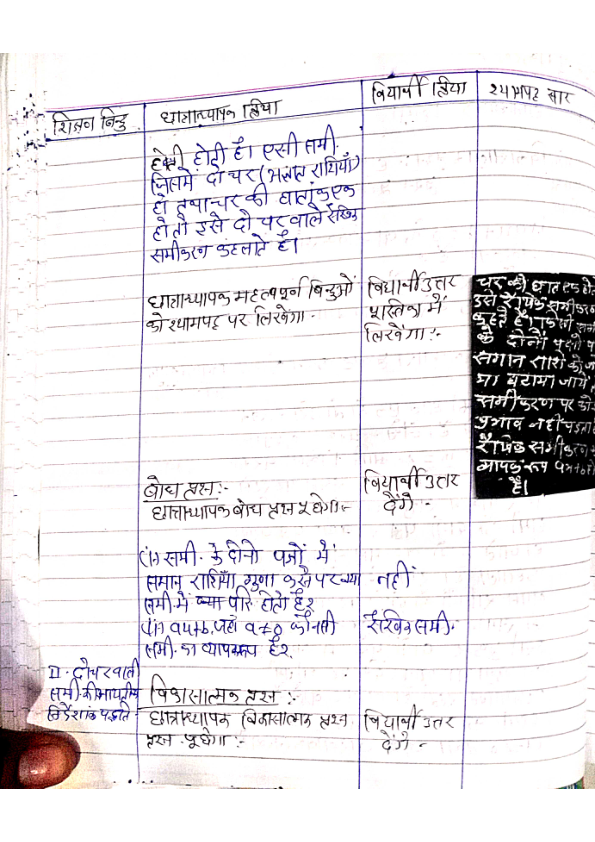 शिक्षण बिन्दु
छात्राध्यापक क्रिया
विद्यार्थी क्रिया
श्यामपट्ट सार
होती है। एसी समी.
जिसमें दो चर (अज्ञात राशियाँ)
हो तथा चर की घातांक एक
हो तो इसे दो चर वाले रैखिक
समीकरण कहलाते है।
छात्राध्यापक महत्वपूर्न बिन्दुओं
को श्यामपट्ट पर लिखेगा।
विद्यार्थी उत्तर
पुस्तिका में
लिखेंगा :-
चर की घात एक हो
उसे रैखिक समीकरण
कहते है। किसी समी
के दोनों पक्षों
समान राशी को
या घटाया जाये
समीकरण पर को
प्रभाव नहीं पड़ता
रैखिक समीकरण
व्यापक रूप
है।
बोध प्रश्न :-
छात्राध्यापक बोध प्रश्न पूछेगा :-
विद्यार्थी उत्तर
देंगे -
(i) समी. के दोनो पक्षों में
समान राशियाँ गुणा करने पर क्या
समी में क्या परि होता है?
नहीं
(ii) ax+b, जहाँ a≠0 कौनसी
समी. का व्यापक रूप है?
रैखिक समी.
II. दो चर वाली
समी. की
निर्देशांक पद्धति
विकासात्मक प्रश्न :-
छात्राध्यापक विकासात्मक प्रश्न
प्रश्न पूछेगा :-
विद्यार्थी उत्तर
देंगे -